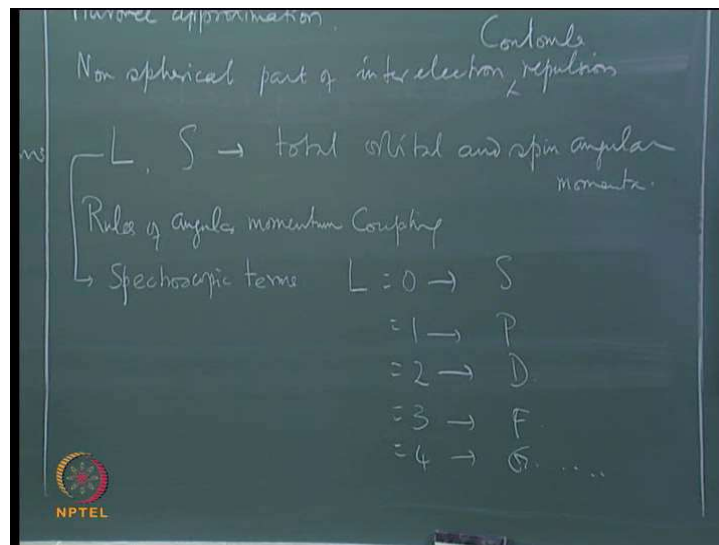 Hartree approximation.
Coulomb
Non spherical part of interelectron repulsion
L, S → total orbital and spin angular
momenta.
Rules of angular momentum Coupling
→ Spectroscopic terms L = 0 → S
= 1 → P
= 2 → D
= 3 → F
= 4 → G......
NPTEL